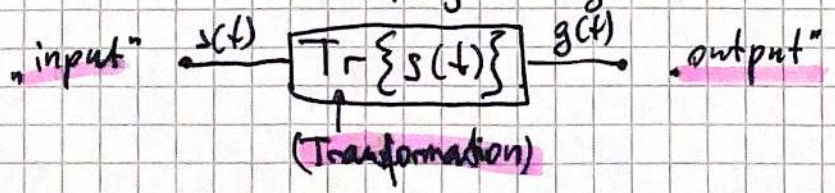 „input" s(t) Tr{s(t)} g(t) „output"
(Transformation)